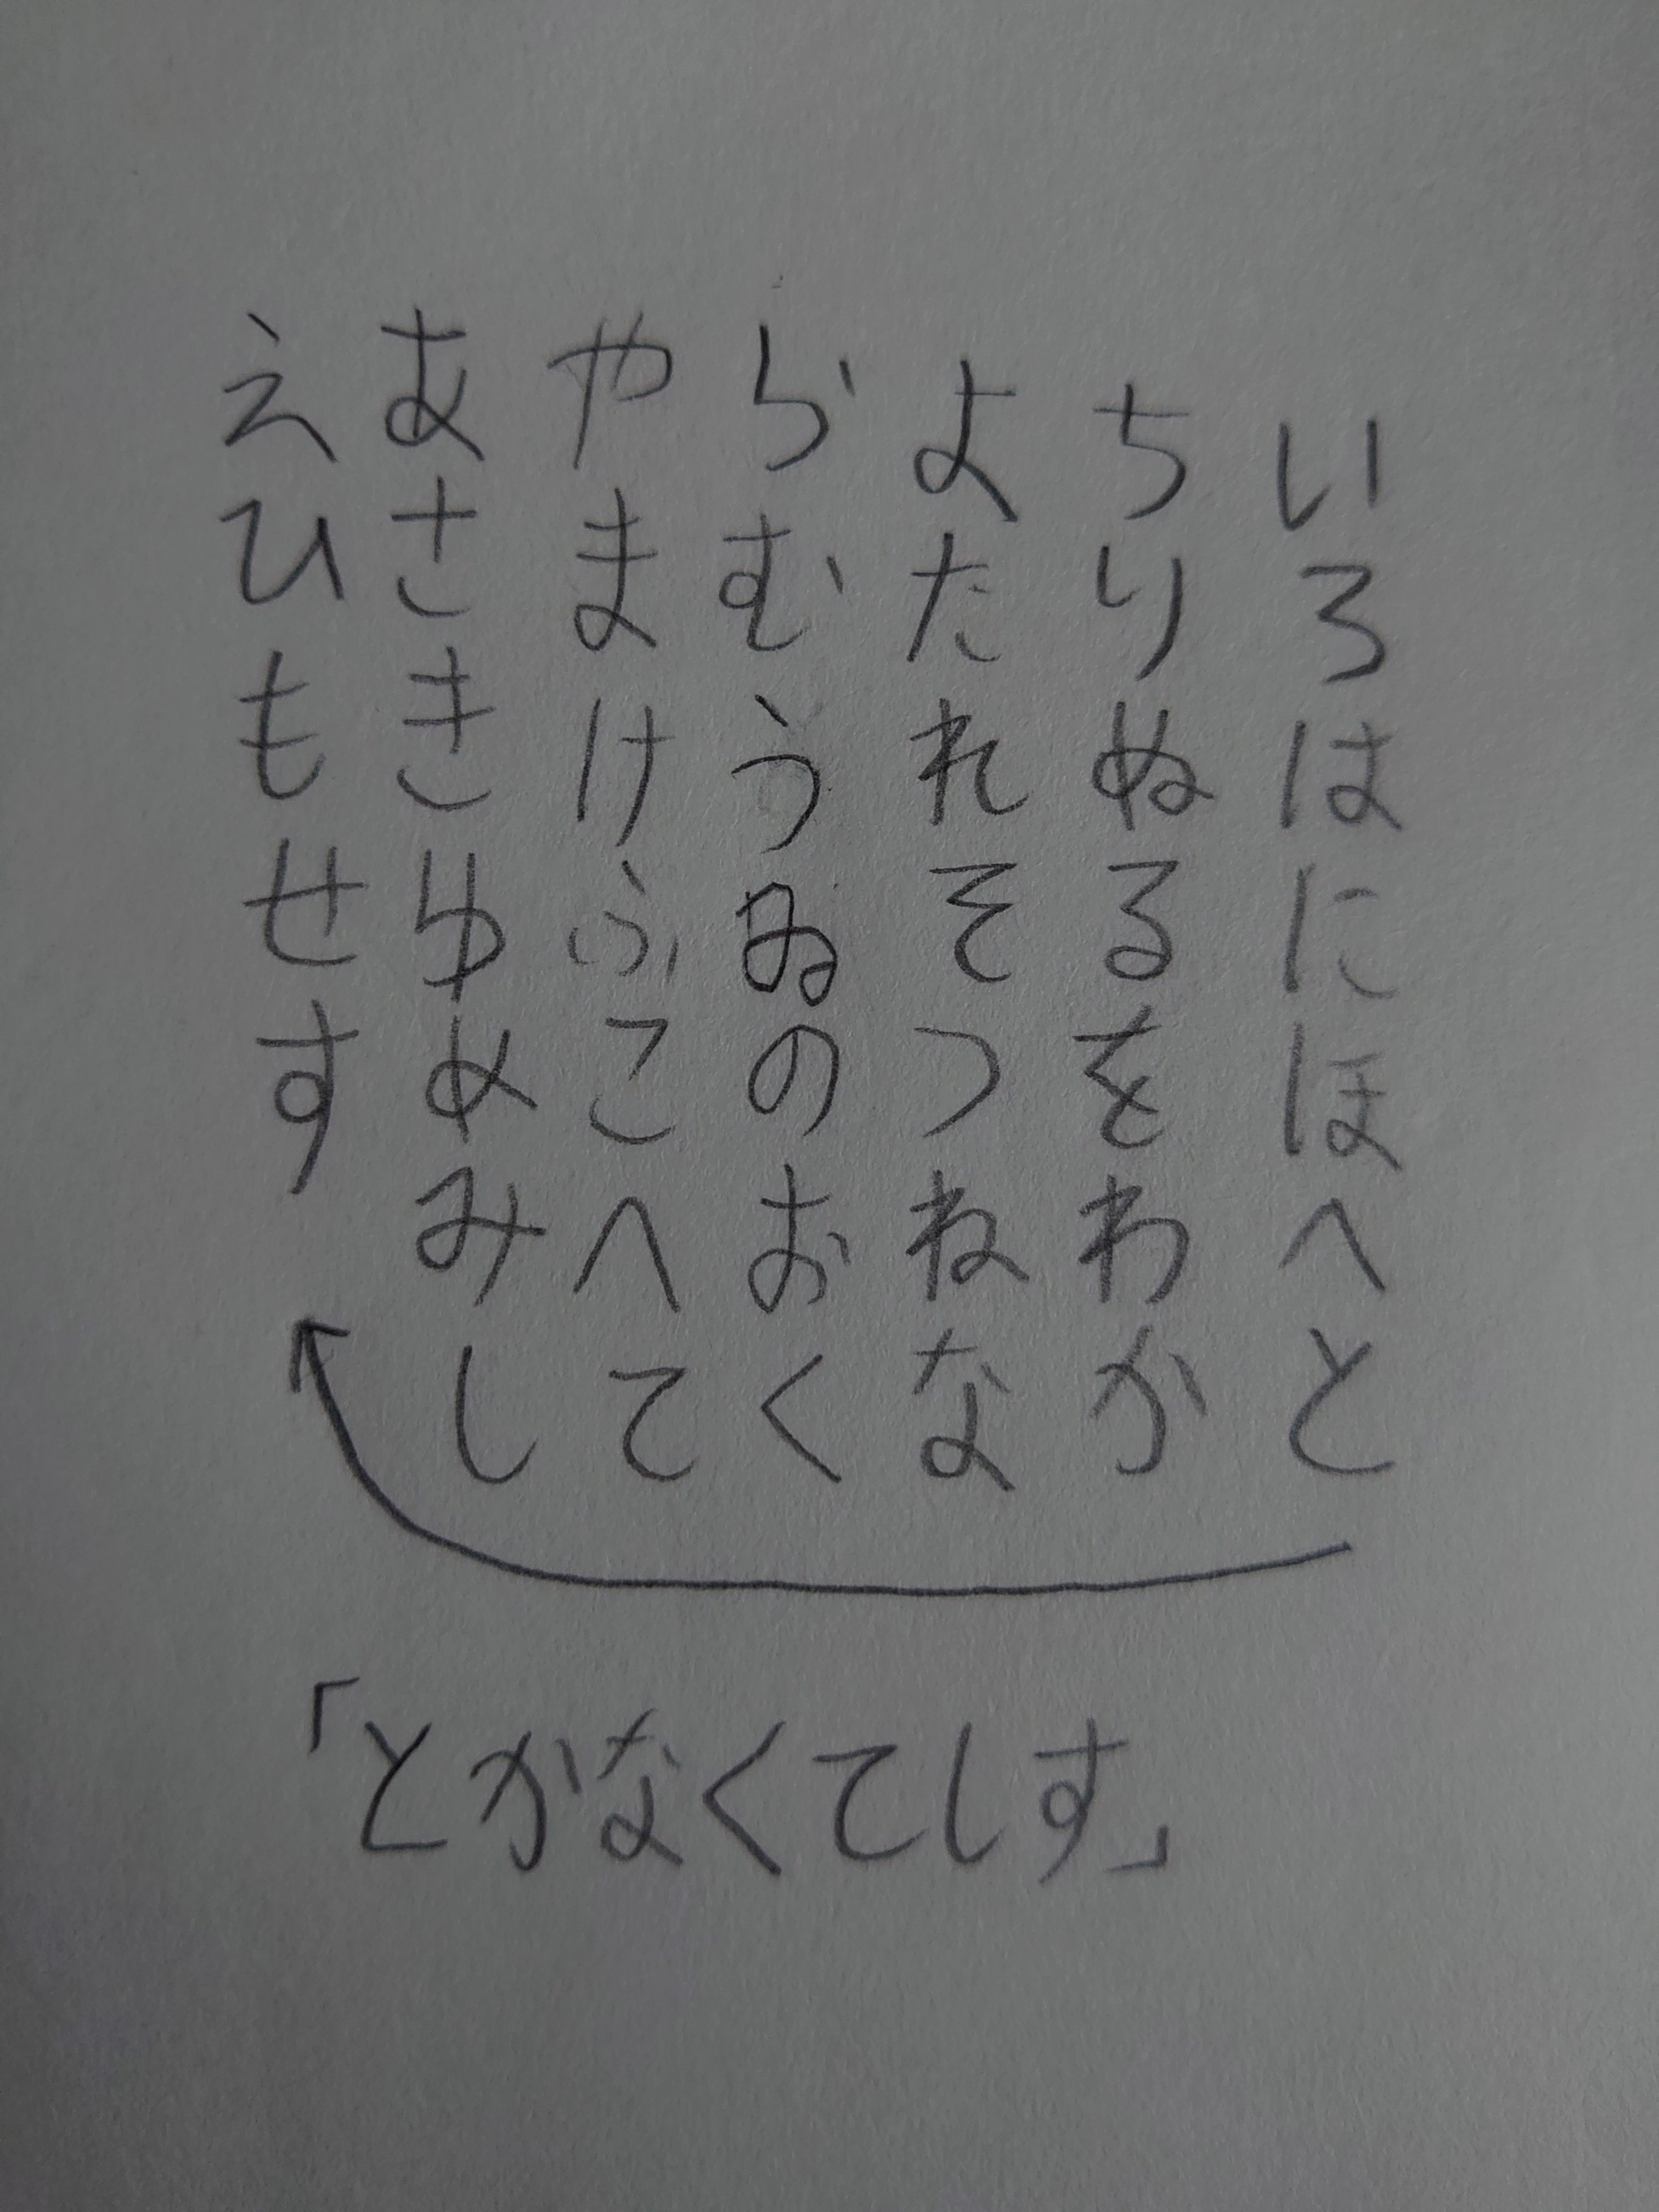 いろはにほへと
ちりぬるをわか
よたれそつねな
らむうゐのおく
やまけふこへて
あさきゆめみし
えひもせす
「とかなくてしす」